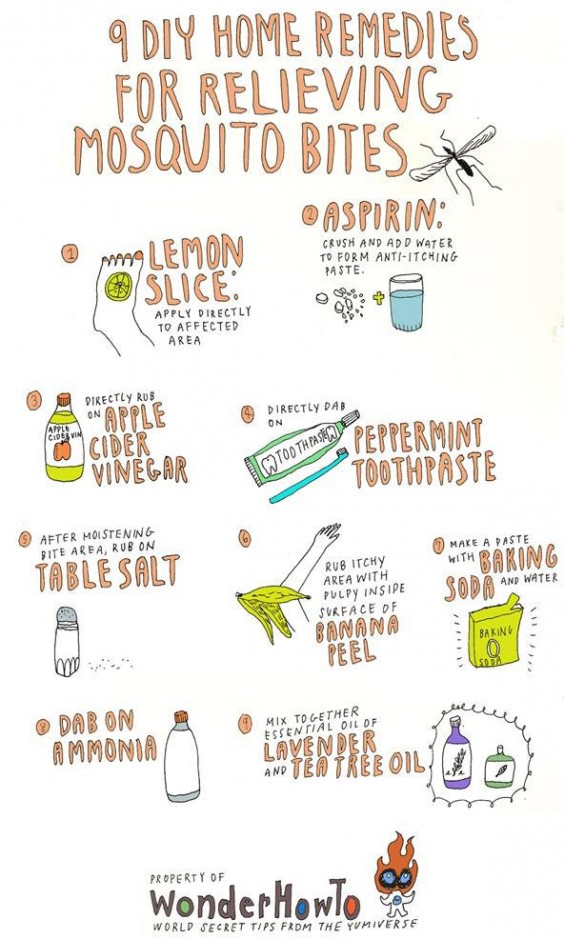 9 DIY HOME REMEDIES
FOR RELIEVING
MOSQUITO BITES
1
LEMON
SLICE:
APPLY DIRECTLY
TO AFFECTED
AREA
2
ASPIRIN:
CRUSH AND ADD WATER
TO FORM ANTI-ITCHING
PASTE.
+
3
DIRECTLY RUB
ON APPLE
CIDER
VINEGAR
APPLE
CIDER VIN
4
DIRECTLY DAB
ON
PEPPERMINT
TOOTHPASTE
TOOTHPASTE
5
AFTER MOISTENING
BITE AREA, RUB ON
TABLE SALT
6
RUB ITCHY
AREA WITH
PULPY INSIDE
SURFACE OF
BANANA
PEEL
7
MAKE A PASTE
WITH BAKING
SODA AND WATER
BAKING
SODA
8
DAB ON
AMMONIA
9
MIX TOGETHER
ESSENTIAL OIL OF
LAVENDER
AND TEA TREE OIL
PROPERTY OF
WonderHowTo
WORLD SECRET TIPS FROM THE YUMIVERSE